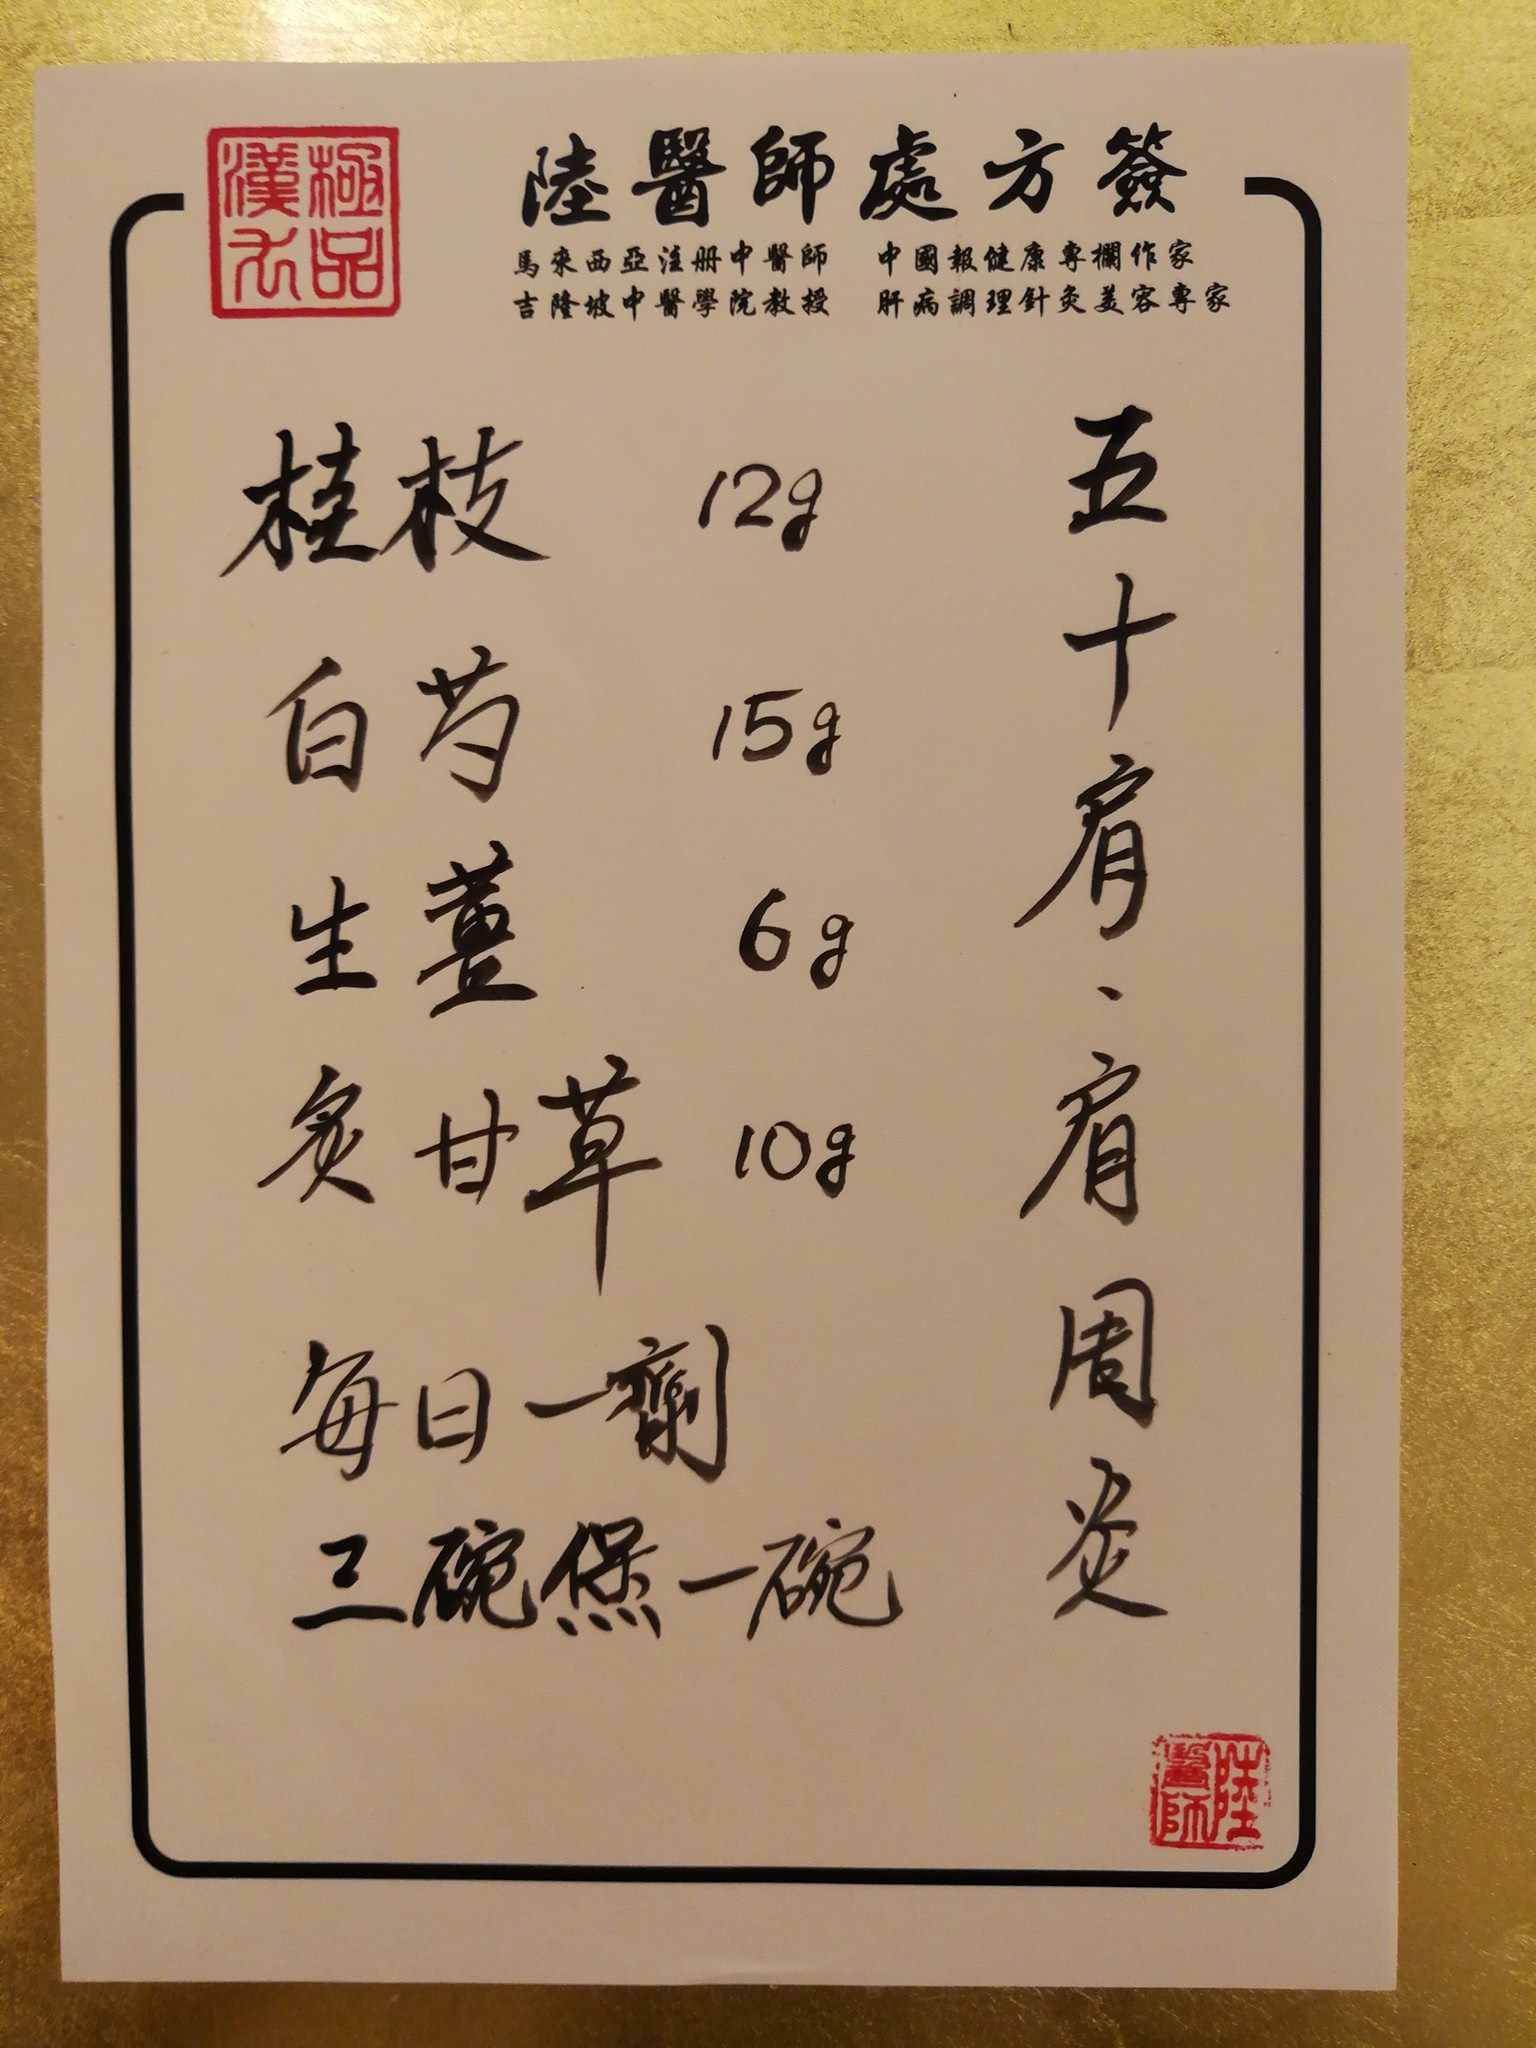 極品
漢方
陸醫師處方簽
馬來西亞注册中醫師 中國報健康專欄作家
吉隆坡中醫學院教授 肝病調理針灸美容專家
五十肩·肩周炎
桂枝 12g
白芍 15g
生薑 6g
炙甘草 10g
每日一劑
三碗煲一碗
陸醫師